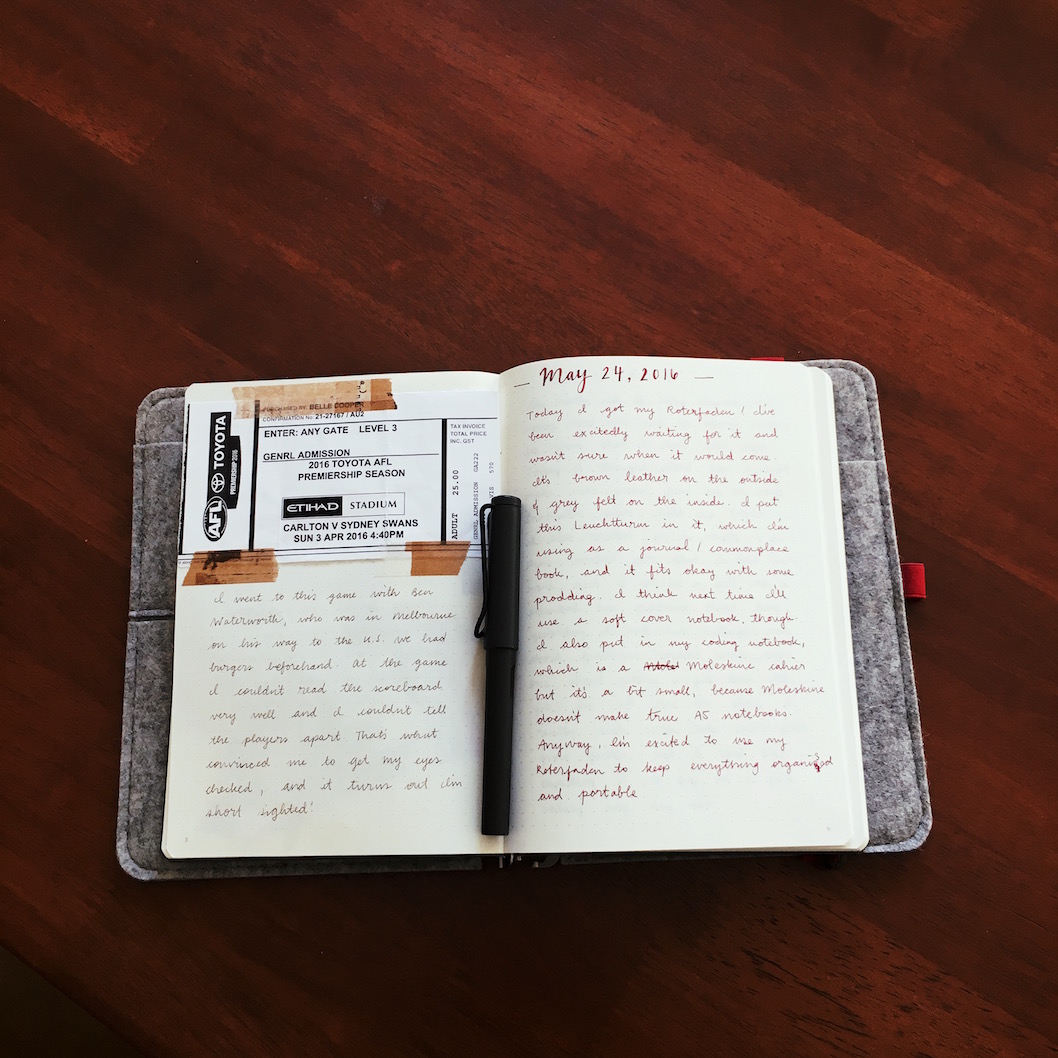 PURCHASED BY: BELLE COOPER
CONFIRMATION No: 21-27167 / AU2
TOYOTA
PREMIERSHIP 2016
AFL
ENTER: ANY GATE LEVEL 3
GENRL ADMISSION
2016 TOYOTA AFL
PREMIERSHIP SEASON
ETIHAD STADIUM
CARLTON V SYDNEY SWANS
SUN 3 APR 2016 4:40PM
TAX INVOICE
TOTAL PRICE
INC. GST
ADULT 25.00
GENRL ADMISSION GA222
570
I went to this game with Ben
Waterworth, who was in Melbourne
on his way to the U.S. We had
burgers beforehand. At the game
I couldn't read the scoreboard
very well and I couldn't tell
the players apart. That's what
convinced me to get my eyes
checked, and it turns out I'm
short sighted!
— May 24, 2016 —
Today I got my Roterfaden! I've
been excitedly waiting for it and
wasn't sure when it would come.
It's brown leather on the outside
& grey felt on the inside. I put
this Leuchtturm in it, which I'm
using as a journal/commonplace
book, and it fits okay with some
prodding. I think next time I'll
use a soft cover notebook, though.
I also put in my coding notebook,
which is a Moleskine cahier
but it's a bit small, because Moleskine
doesn't make true A5 notebooks.
Anyway, I'm excited to use my
Roterfaden to keep everything organised
and portable